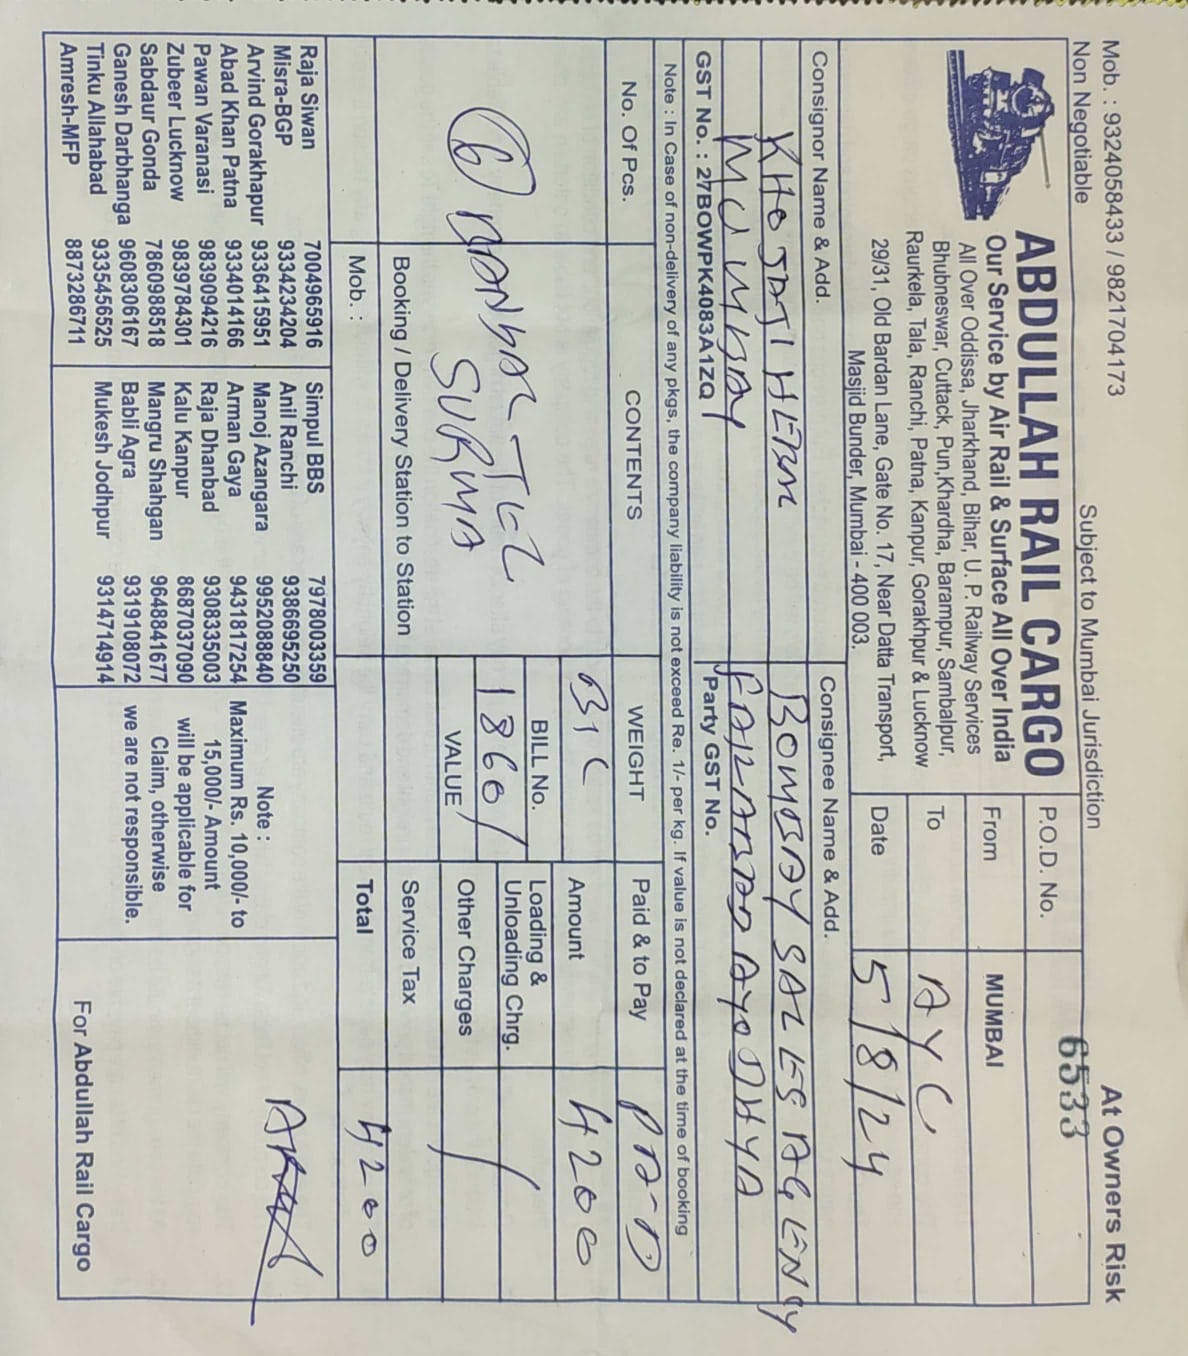 Mob. : 9324058433 / 9821704173
Subject to Mumbai Jurisdiction
At Owners Risk
Non Negotiable
ABDULLAH RAIL CARGO
Our Service by Air Rail & Surface All Over India
All Over Oddissa, Jharkhand, Bihar, U. P. Railway Services
Bhubneswar, Cuttack, Pun,Khardha, Barampur, Sambalpur,
Raurkela, Tala, Ranchi, Patna, Kanpur, Gorakhpur & Lucknow
29/31, Old Bardan Lane, Gate No. 17, Near Datta Transport,
Masjid Bunder, Mumbai - 400 003.
P.O.D. No. 6533
From MUMBAI
To AYC
Date 5/8/24
Consignor Name & Add.
KHOJATI HERBAL
MUMBAY
GST No. : 27BOWPK4083A1ZQ
Consignee Name & Add.
BOMBAY SALES AGENCY
FAIZABAD AYODHYA
Party GST No.
Note : In Case of non-delivery of any pkgs, the company liability is not exceed Re. 1/- per kg. If value is not declared at the time of booking
No. Of Pcs. CONTENTS WEIGHT Paid & to Pay PAID
6 TEL
SURMA
Amount 4200
BILL No.
1860/
VALUE
Loading &
Unloading Chrg.
Other Charges
Booking / Delivery Station to Station
Service Tax
Mob. :
Total 4200
Raja Siwan 7004965916
Misra-BGP 9334234204
Arvind Gorakhapur 9336415951
Abad Khan Patna 9334014166
Pawan Varanasi 9839094216
Zubeer Lucknow 9839784301
Sabdaur Gonda 7860988518
Ganesh Darbhanga 9608306167
Tinku Allahabad 9335456525
Amresh-MFP 8873286711
Simpul BBS 7978003359
Anil Ranchi 9386695250
Manoj Azangara 9952088840
Arman Gaya 9431817254
Raja Dhanbad 9308335003
Kalu Kanpur 8687037090
Mangru Shahgan 9648841677
Babli Agra 9319108072
Mukesh Jodhpur 9314714914
Note :
Maximum Rs. 10,000/- to
15,000/- Amount
will be applicable for
Claim, otherwise
we are not responsible.
For Abdullah Rail Cargo